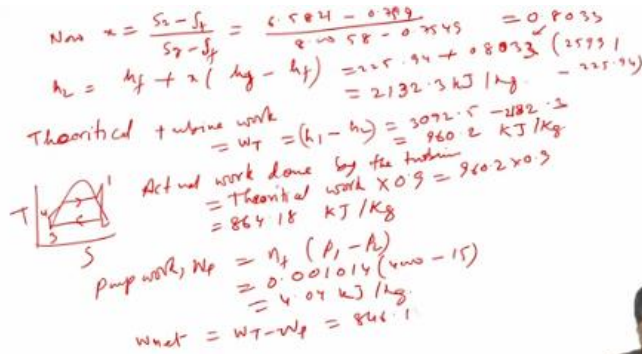 Now x = (S2 - Sf)/(Sg - Sf) = (6.5821 - 0.7549)/(8.0058 - 0.7549) = 0.8033
h2 = hf + x (hg - hf) = 225.94 + 0.8033 (2599.1 - 225.94)
= 2132.3 kJ/kg.
Theoritical turbine work
= WT = (h1 - h2) = 3092.5 - 2132.3
= 960.2 KJ/Kg.
Actual work done by the turbine
= Theoritical work x 0.9 = 960.2 x 0.9
= 864.18 KJ/Kg
T
4
1
3
S
Pump work, WP = (P1 - P2)
= 0.001014 (4000 - 15)
= 4.04 kJ/kg.
Wnet = WT - WP = 846.1